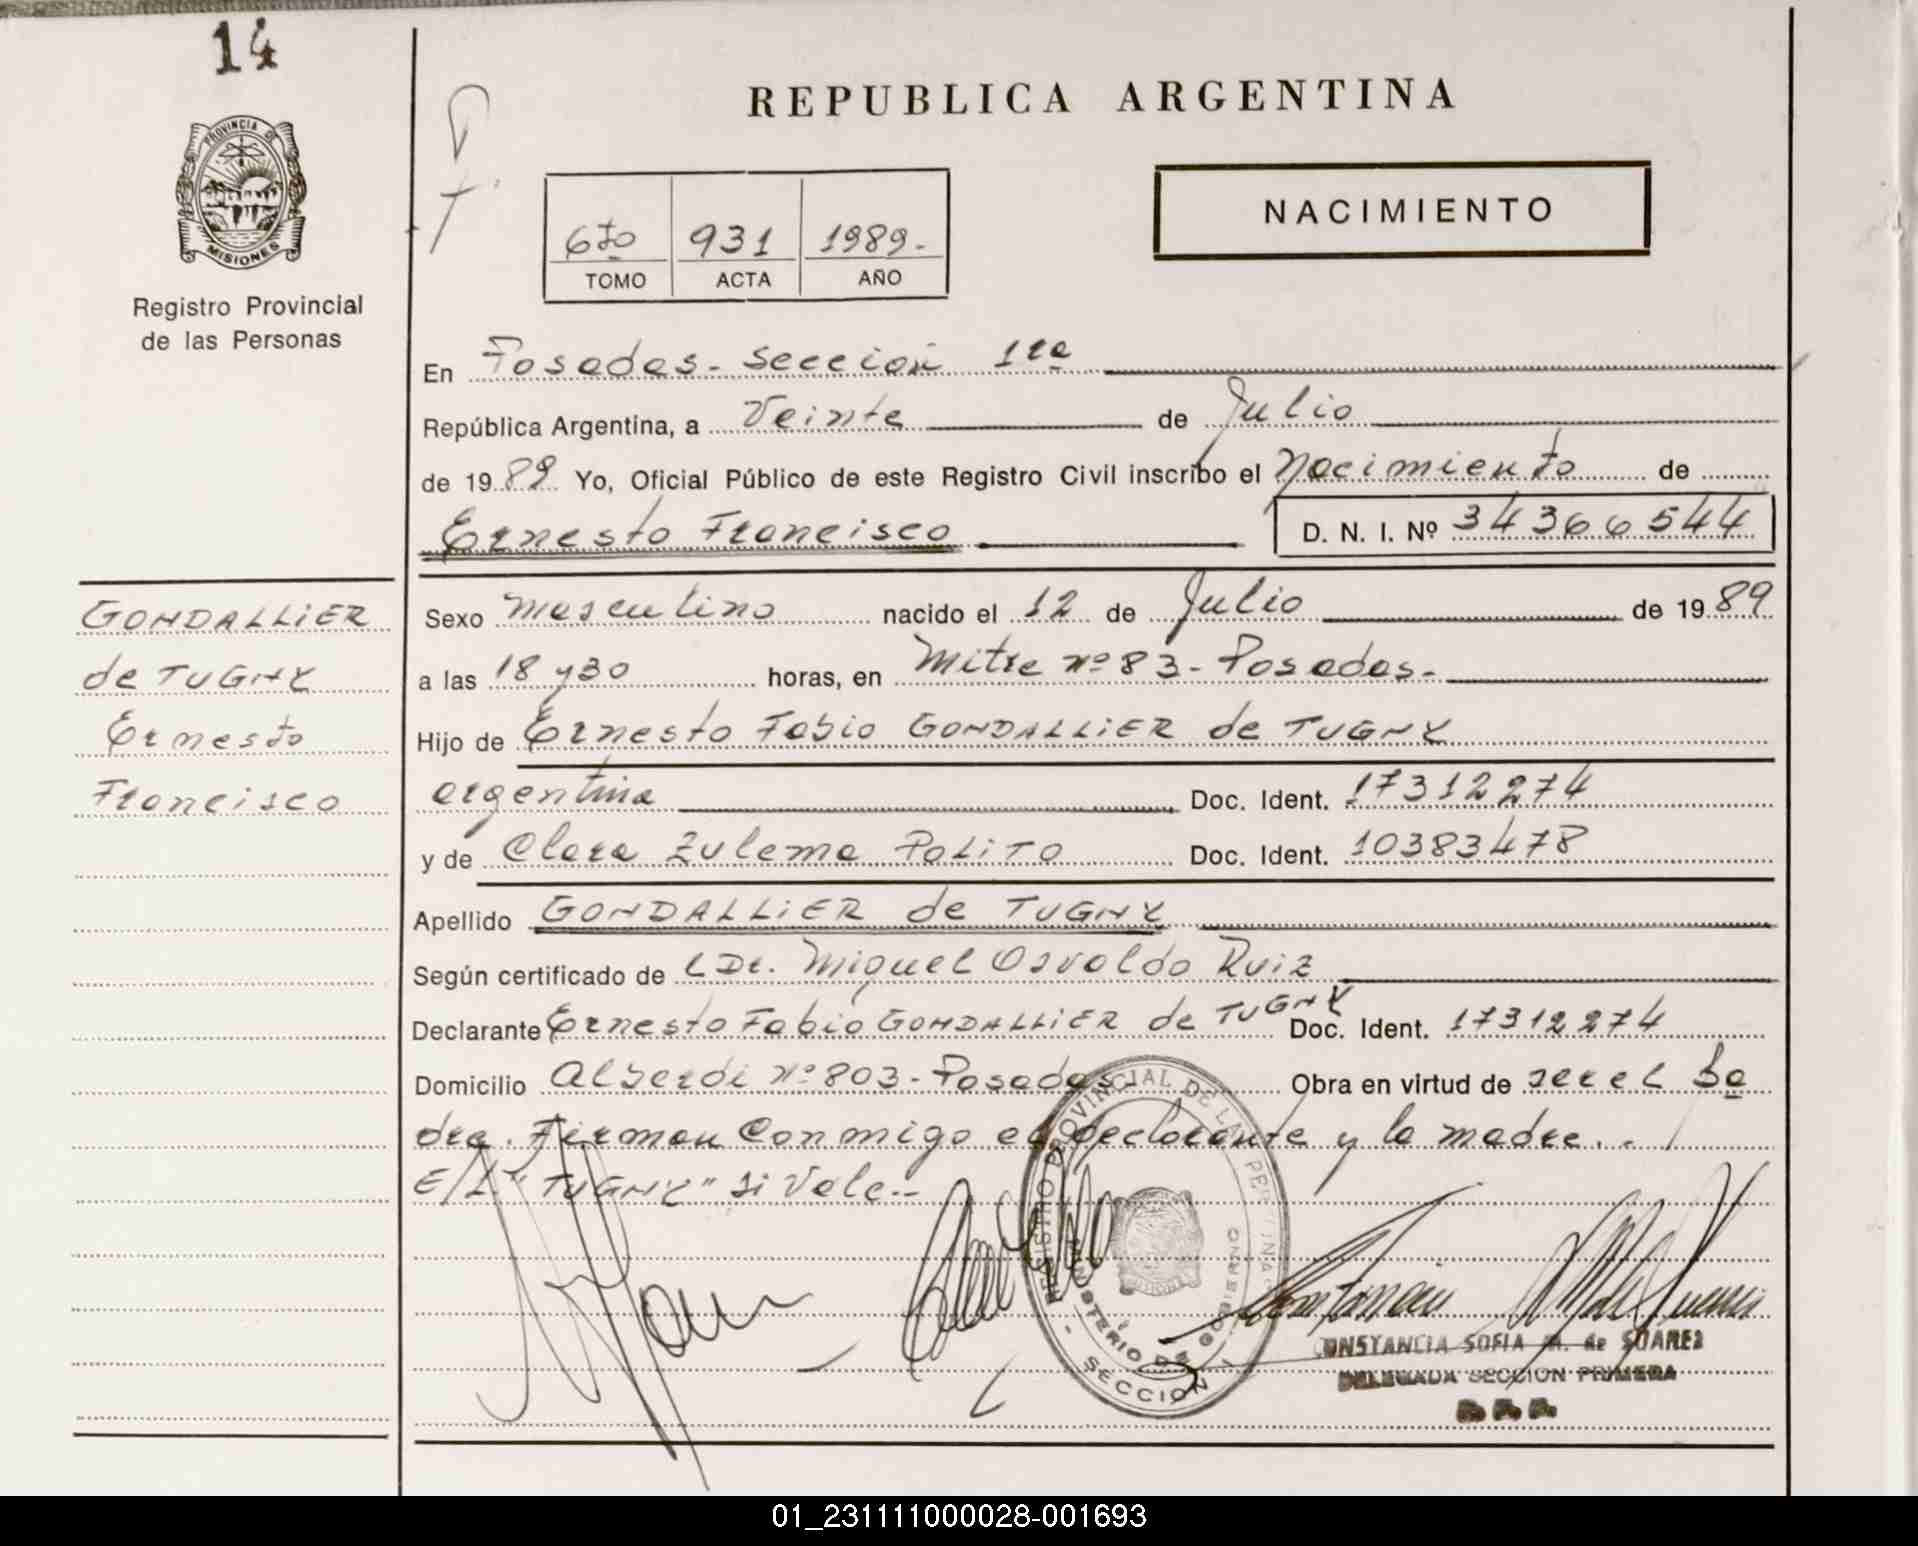 14
PROVINCIA DE
MISIONES
Registro Provincial
de las Personas
REPUBLICA ARGENTINA
6to 931 1989.-
TOMO ACTA AÑO
NACIMIENTO
En Posadas - Sección 1ra
República Argentina, a Veinte de Julio
de 1989 Yo, Oficial Público de este Registro Civil inscribo el Nacimiento de
Ernesto Francisco D. N. I. Nº 34366544
GONDALLIER
de TUGNY
Ernesto
Francisco
Sexo masculino nacido el 12 de Julio de 1989
a las 18 y 30 horas, en Mitre nº 83 - Posadas.-
Hijo de Ernesto Fabio GONDALLIER de TUGNY
argentina Doc. Ident. 17312274
y de Clara Zulema POLITO Doc. Ident. 10383478
Apellido GONDALLIER de TUGNY
Según certificado de LDr. Miguel Osvaldo Ruiz
Declarante Ernesto Fabio GONDALLIER de TUGNY Doc. Ident. 17312274
Domicilio Alberdi nº 803 - Posadas.- Obra en virtud de ser el pa
dre. Firman conmigo el declarante y la madre..
E/L "TUGNY" si Vale.-
REGISTRO PROVINCIAL DE LAS PERSONAS
MINISTERIO DE GOBIERNO
- SECCION 1
CONSTANCIA SOFIA M. de SUAREZ
DELEGADA SECCION PRIMERA
01_231111000028-001693